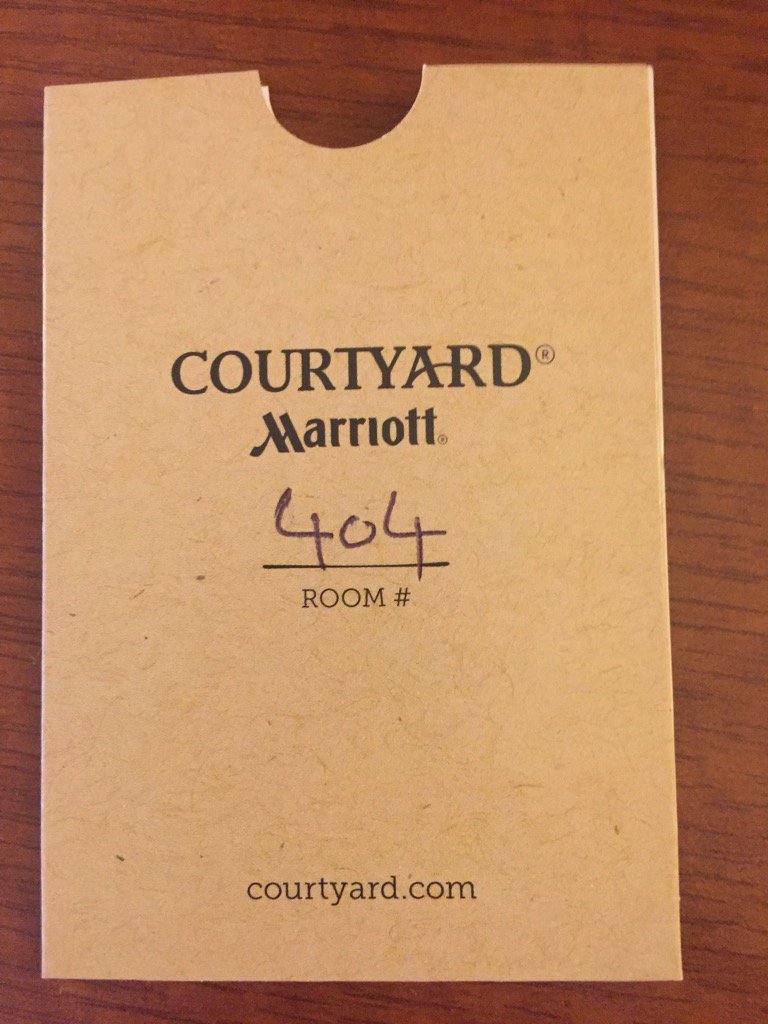 COURTYARD®
Marriott®
404
ROOM #
courtyard.com